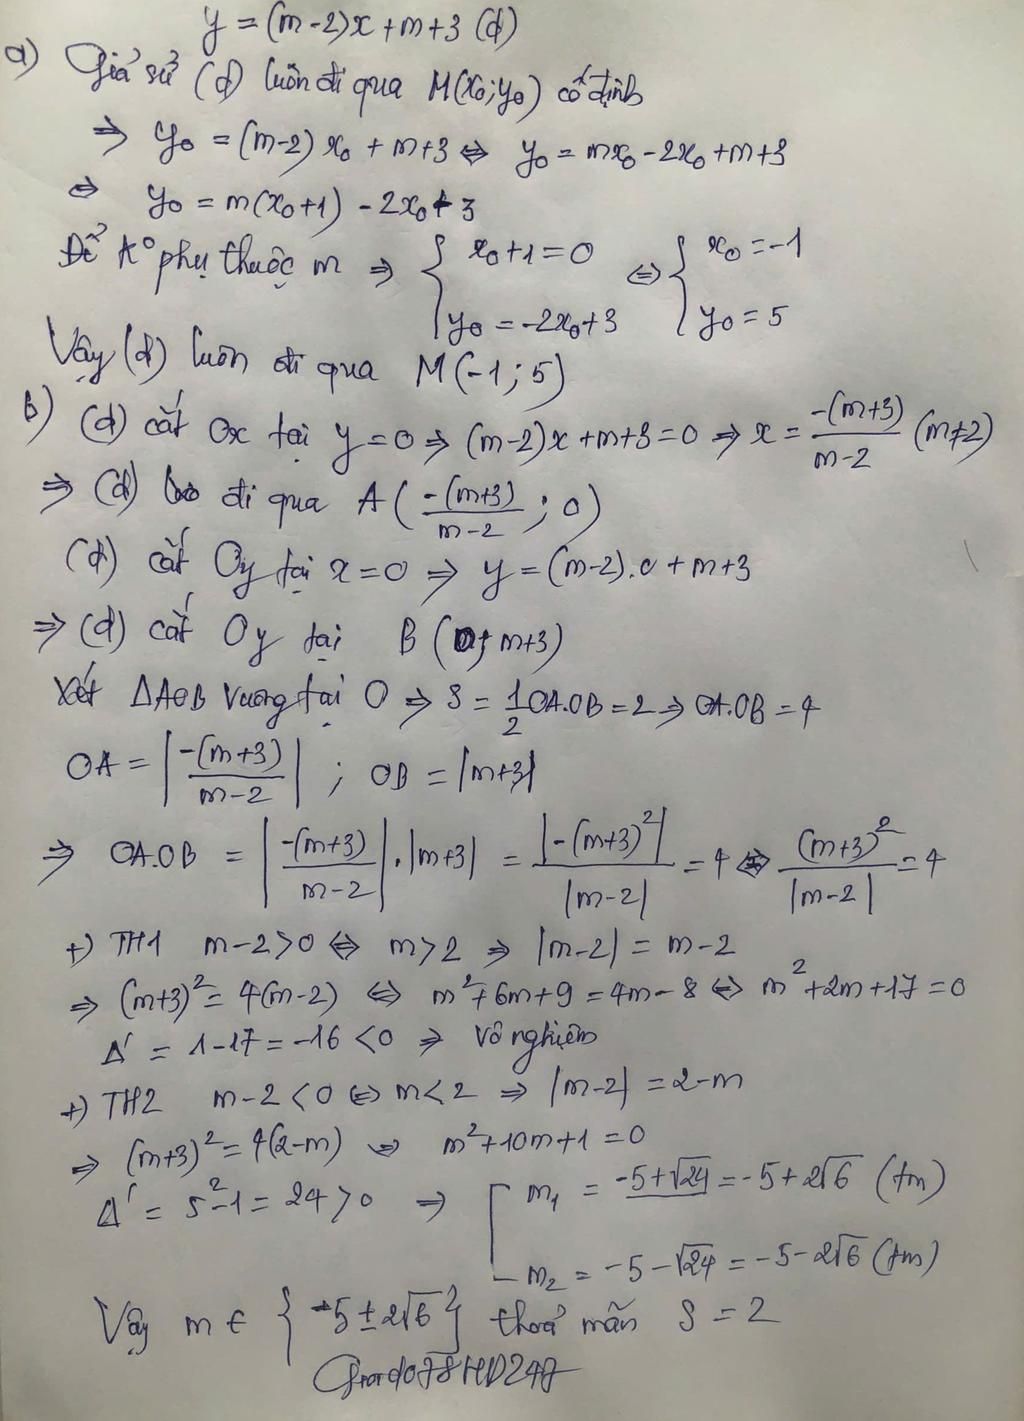 y = (m-2)x + m+3 (d)
a) Giả sử (d) luôn đi qua M(x₀; y₀) cố định
⇒ y₀ = (m-2) x₀ + m+3 ⇔ y₀ = mx₀ - 2x₀ + m+3
⇔ y₀ = m(x₀+1) - 2x₀ + 3
Để k° phụ thuộc m ⇒ { x₀+1=0 ; y₀ = -2x₀+3 ⇔ { x₀ = -1 ; y₀ = 5
Vậy (d) luôn đi qua M(-1; 5)
b) (d) cắt Ox tại y=0 ⇒ (m-2)x + m+3 = 0 ⇒ x = -(m+3)/(m-2) (m≠2)
⇒ (d) đi qua A(-(m+3)/(m-2); 0)
(d) cắt Oy tại x=0 ⇒ y = (m-2).0 + m+3
⇒ (d) cắt Oy tại B (0; m+3)
Xét ΔAOB vuông tại O ⇒ S = 1/2 OA.OB = 2 ⇒ OA.OB = 4
OA = |-(m+3)/(m-2)| ; OB = |m+3|
⇒ OA.OB = |-(m+3)/(m-2)| . |m+3| = |-(m+3)²|/|m-2| = 4 ⇔ (m+3)²/|m-2| = 4
+) TH1 m-2>0 ⇔ m>2 ⇒ |m-2| = m-2
⇒ (m+3)² = 4(m-2) ⇔ m²+6m+9 = 4m-8 ⇔ m²+2m+17=0
Δ' = 1-17 = -16 <0 ⇒ Vô nghiệm
+) TH2 m-2<0 ⇔ m<2 ⇒ |m-2| = 2-m
⇒ (m+3)² = 4(2-m) ⇔ m²+10m+1=0
Δ' = 5²-1 = 24>0 ⇒ [ m₁ = -5+√24 = -5+2√6 (tm)
m₂ = -5-√24 = -5-2√6 (tm)
Vậy m ∈ {-5±2√6} thoả mãn S = 2